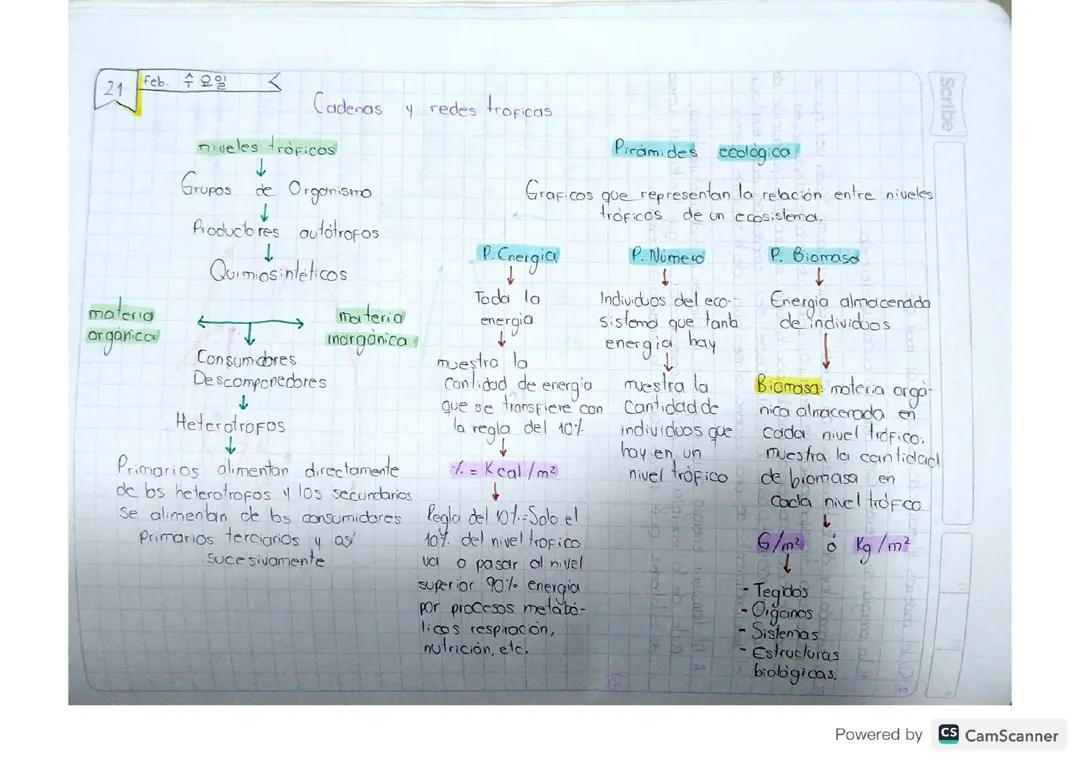 21 feb. 수요일
Cadenas y redes troficas
niveles tróficos
Grupos de Organismo
Productores autótrofos
Quimiosintéticos
materia
orgánica
materia
inorgánica
Consumidores
Descomponedores
Heterotrofos
Primarios alimentan directamente
de los heterotrofos y los secundarios
se alimentan de los consumidores
primarios terciarios y así
sucesivamente
Pirámides ecológica
Graficos que representan la relación entre niveles
tróficos de un ecosistema.
P. Energia
Toda la
energia
muestra la
cantidad de energia
que se transfiere con
la regla del 10%
% = Kcal/m²
Regla del 10%.-Solo el
10% del nivel trofico
va a pasar al nivel
superior 90% energia
por procesos metabó-
licos respiración,
nutrición, etc.
P. Número
Individuos del eco-
sistema que tanta
energia hay
muestra la
cantidad de
individuos que
hay en un
nivel trófico
P. Biomasa
Energia almacenada
de individuos
Biomasa: materia orgá-
nica almacenada en
cada nivel trófico.
muestra la cantidad
de biomasa en
cada nivel trófico
G/m² ó Kg/m²
- Tegidos
- Organos
- Sistemas
- Estructuras
biologicas.
Scribe
Powered by CS CamScanner